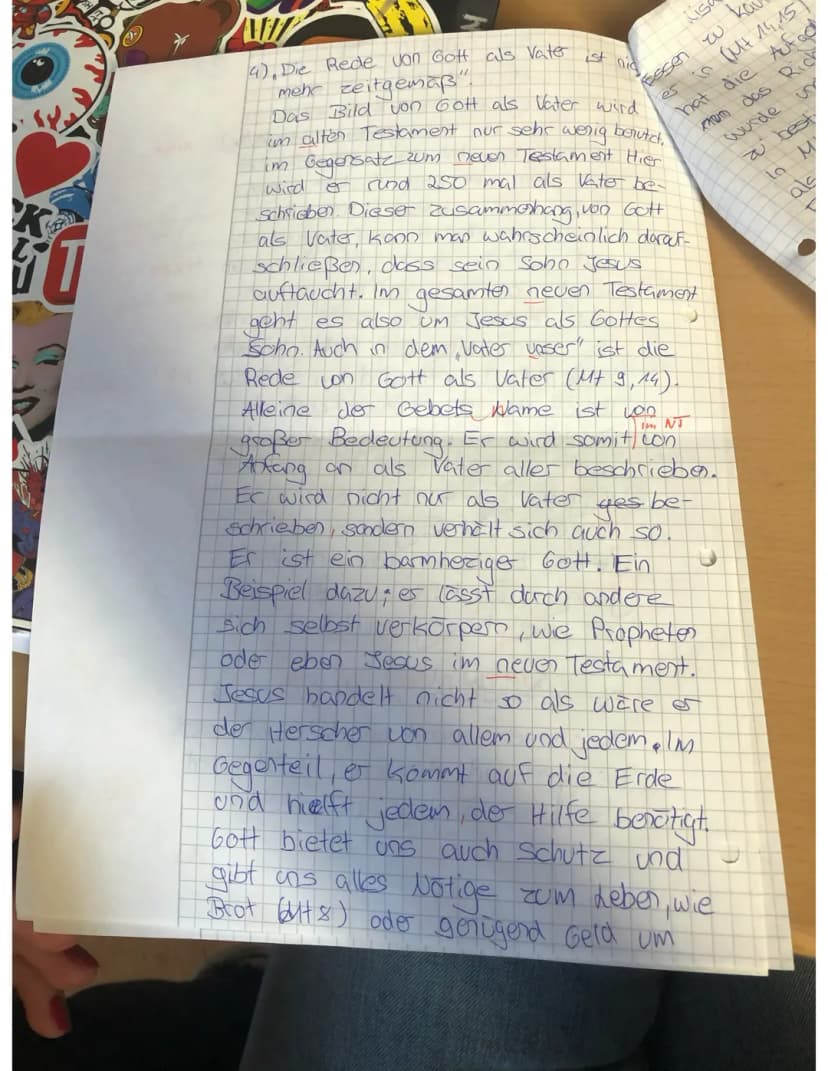 4) „Die Rede von Gott als Vater ist nic
mehr zeitgemäß"
Das Bild von Gott als Vater wird
im alten Testament nur sehr wenig benutzt,
im Gegensatz zum neuen Testament Hier
wird er rund 250 mal als Vater be-
schrieben. Dieser Zusammenhang, von Gott
als Vater, kann man wahrscheinlich darauf-
schließen, dass sein Sohn Jesus
auftaucht. Im gesamten neuen Testament
geht es also um Jesus als Gottes
Sohn. Auch in dem „Vater unser" ist die
Rede von Gott als Vater (Mt 9,14).
Alleine der Gebets Name ist von
im NT
großer Bedeutung. Er wird somit von
Anfang an als Vater aller beschrieben.
Er wird nicht nur als Vater ges be-
schrieben, sondern verhält sich auch so.
Er ist ein barmheziger Gott. Ein
Beispiel dazu: er lässt durch andere
sich selbst verkörpern, wie Propheten
oder eben Jesus im neuen Testament.
Jesus handelt nicht so als wäre er
der Herscher von allem und jedem. Im
Gegenteil, er kommt auf die Erde
und hielft jedem, der Hilfe benötigt.
Gott bietet uns auch Schutz und
gibt uns alles Nötige zum Leben, wie
Brot (Mt 8) oder genügend Geld um
essen zu kau
es in (Mt 14,15)
hat die Aufga
man das Ric
wurde un
zu best
In M
als